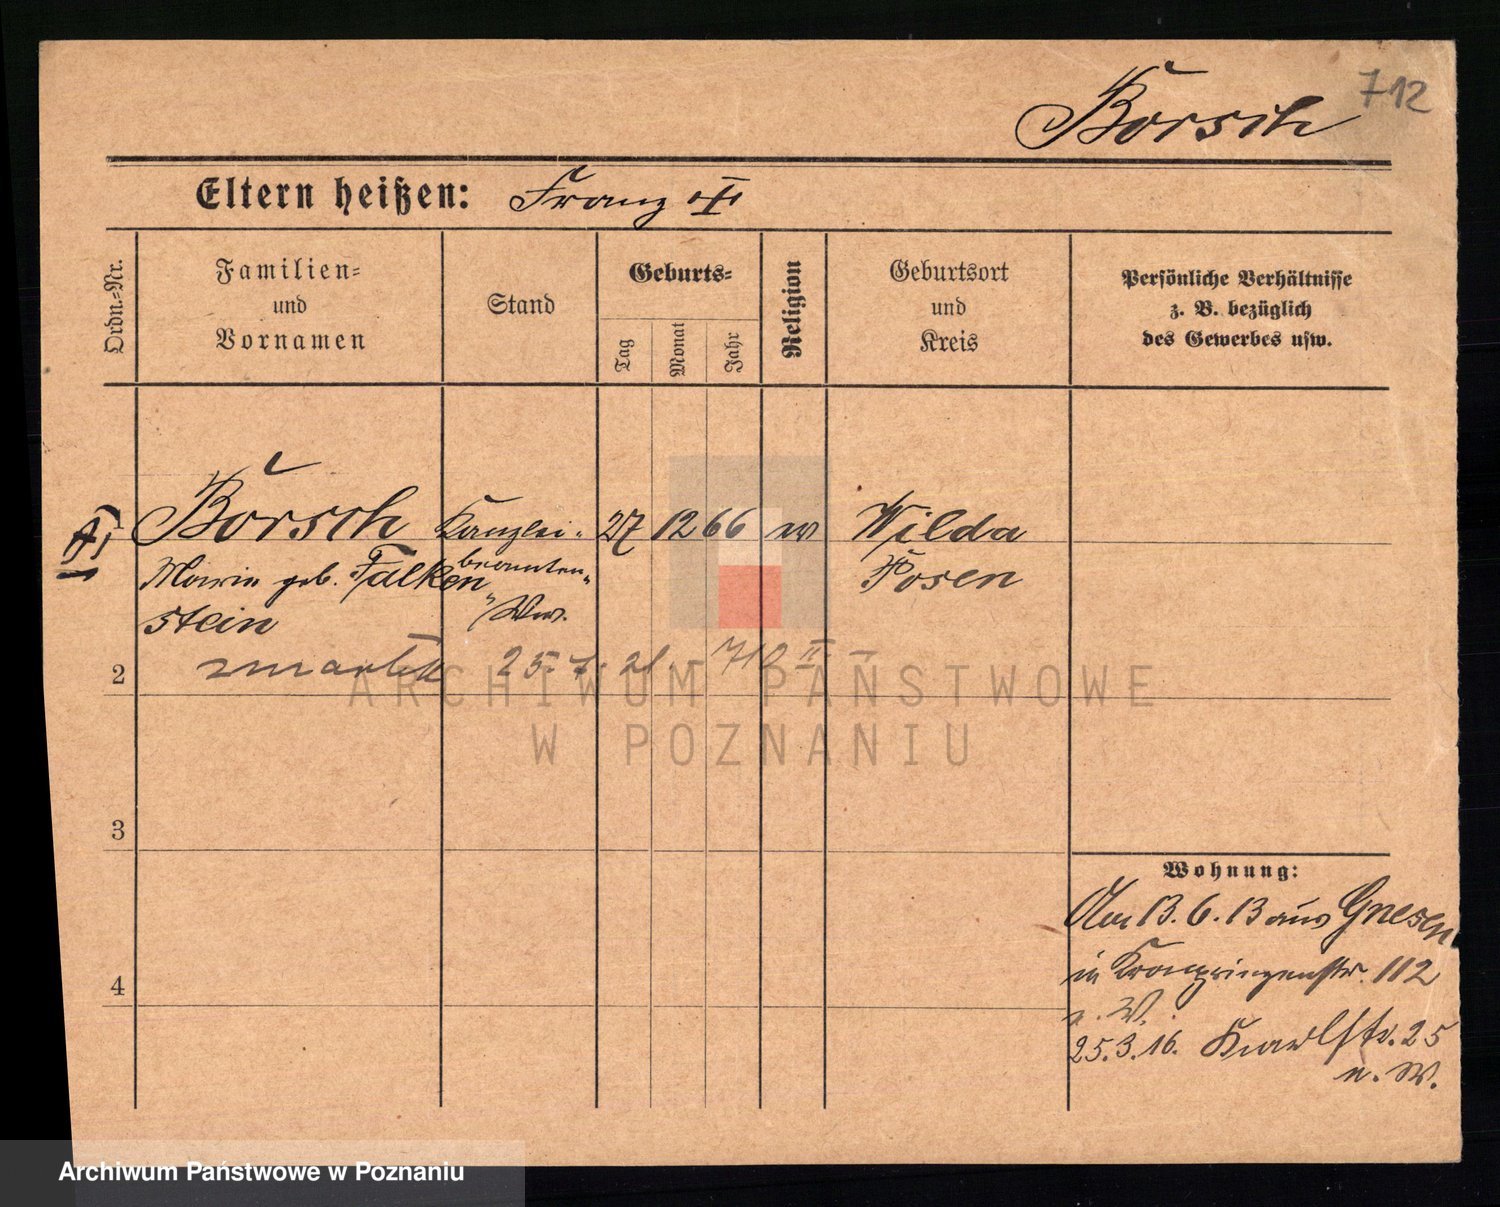 712
Borsch
Eltern heißen: Franz
Ordn.-Nr.
Familien-
und
Vornamen
Stand
Geburts-
Tag
Monat
Jahr
Religion
Geburtsort
und
Kreis
Persönliche Verhältnisse
z. B. bezüglich
des Gewerbes usw.
Borsch Kanzlei- 27 12 66 Wilda
Maria geb. Falken beamten- Posen
stein Ww.
2 25. 7. 21. 712 II
3
4
Wohnung:
Am 13. 6. 13 aus Gnesen
in Kronprinzenstr. 112
n. W.
25. 3. 16. Karlstr. 25
n. W.
ARCHIWUM PAŃSTWOWE
W POZNANIU
Archiwum Państwowe w Poznaniu